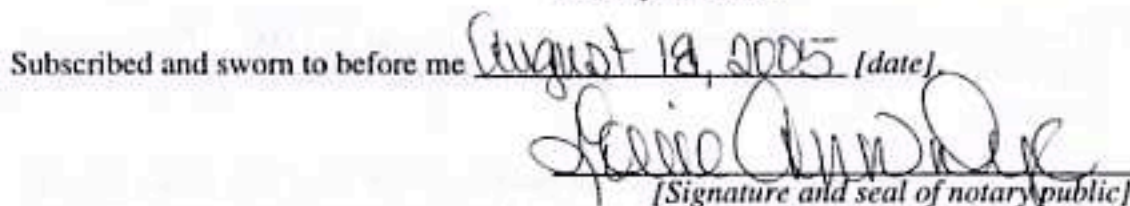 Subscribed and sworn to before me August 18, 2005 [date].
[Signature and seal of notary public]